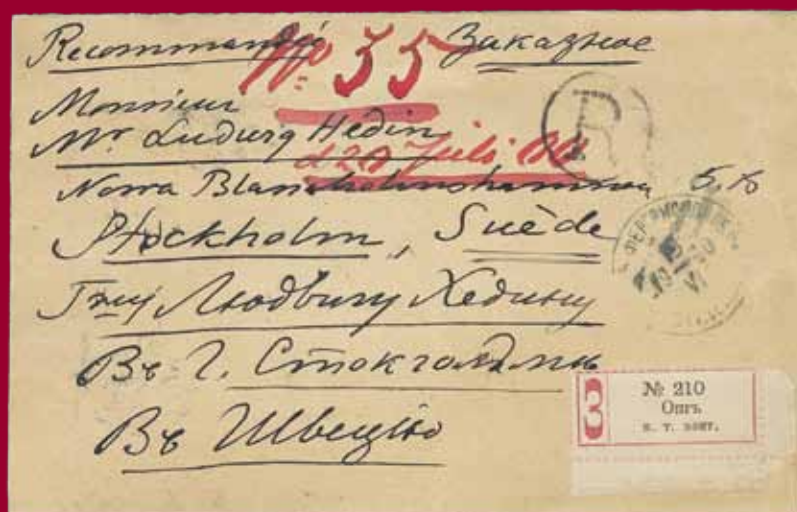 Recommandée Заказное
No 35
Monsieur
Mr Ludwig Hedin
R
d 29 Juli
Norra Blasieholmshamnen 5.B
Stockholm, Suède
Гну Людвигу Хедину
Въ Г. Стокгольмѣ
Въ Швецію
З
№ 210
Ошъ
п. т. конт.